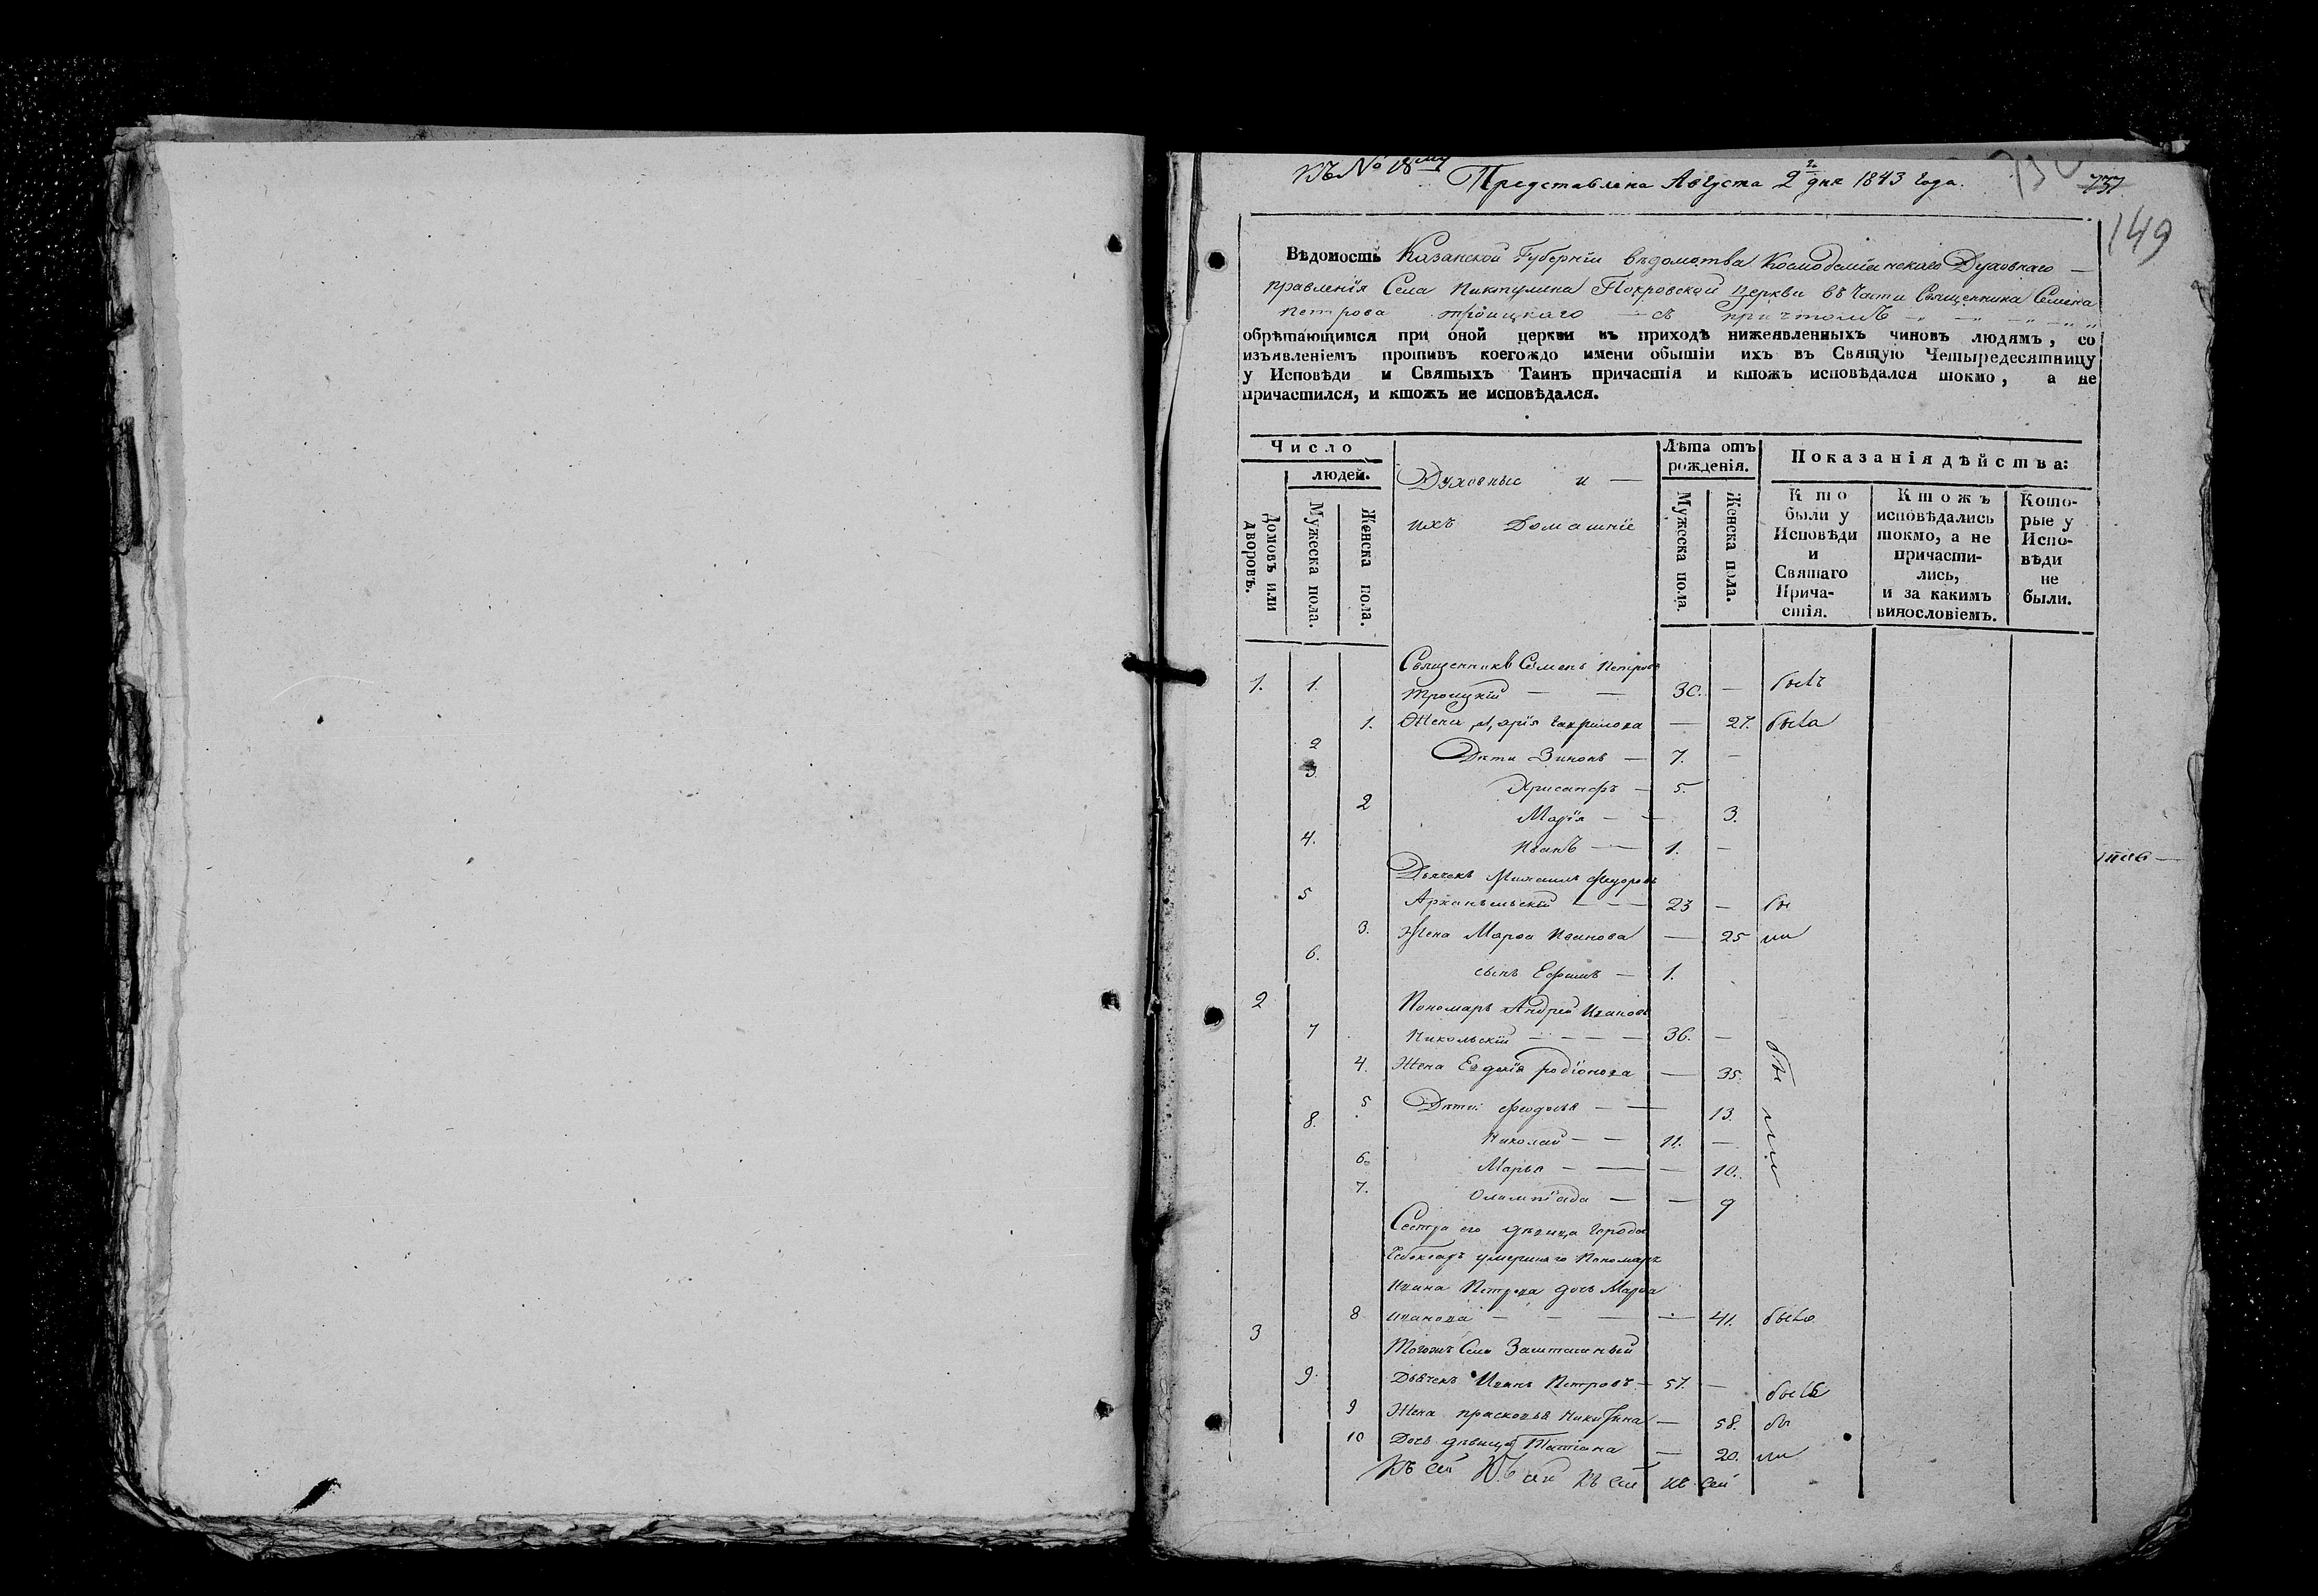 Къ № 18му
Представлена Августа 2го дня 1843 года.
757
149
Вѣдомость Казанской Губерніи вѣдомства Космодемianскаго Духовнаго —
правленія Села Пиктулина Покровской Церкви въ части Священника Семена
Петрова Троицкаго — съ причтомъ
обрѣтающимся при оной церкви въ приходѣ нижеявленныхъ чиновъ людямъ, со
изъявленіемъ противъ коегождо имени обытіи ихъ въ Святую Четыредесятницу
у Исповѣди и Святыхъ Таинъ причастія и ктожъ исповѣдался токмо, а не
причастился, и ктожъ не исповѣдался.
Число
людей.
Домовъ или дворовъ.
Мужеска пола.
Женска пола.
Духовные и —
ихъ Домашніе
Лѣта отъ рожденія.
Мужеска пола.
Женска пола.
Показанія дѣйства:
Кто были у Исповѣди и Святаго Прича-стія.
Ктожъ исповѣдались токмо, а не причасти-лись, и за какимъ винословіемъ.
Кото-рые у Испо-вѣди не были.
Священникъ Семенъ Петровъ
1. 1. Троицкій — — 30. — былъ
1. Жена Марія Гаврилова — 27. была
2 Дѣти Зинонъ — 7. —
3. Хрисанфъ — 5.
2 Марія — — 3.
4. Иванъ — 1. —
Дьячекъ Михаилъ Федоровъ
5 Архангельскій — — — 23 — бы
3. Жена Марфа Иванова — 25 ли
6. сынъ Ефимъ — 1.
2 Пономарь Андрей Ивановъ
7 Никольскій — — — — 36. —
4. Жена Евдокія Родіонова — 35. бы
5 Дѣти Феодосья — — 13.
8. Николай — — 11. — ли
6. Марья — — — 10.
7. Олимпіада — — 9
Сестра его дѣвица города
Чебоксаръ умершаго Пономаря
Ивана Петрова дочь Марфа
8 Иванова — — — — 41. была
3 Тогожъ Села Заштатный
9. Дьячекъ Иванъ Петровъ — 57. — былъ
9 Жена Прасковья Никитина — 58. бы
10 Дочь дѣвица Татіана — 20. ли
Къ сей Къ сей къ сей къ сей